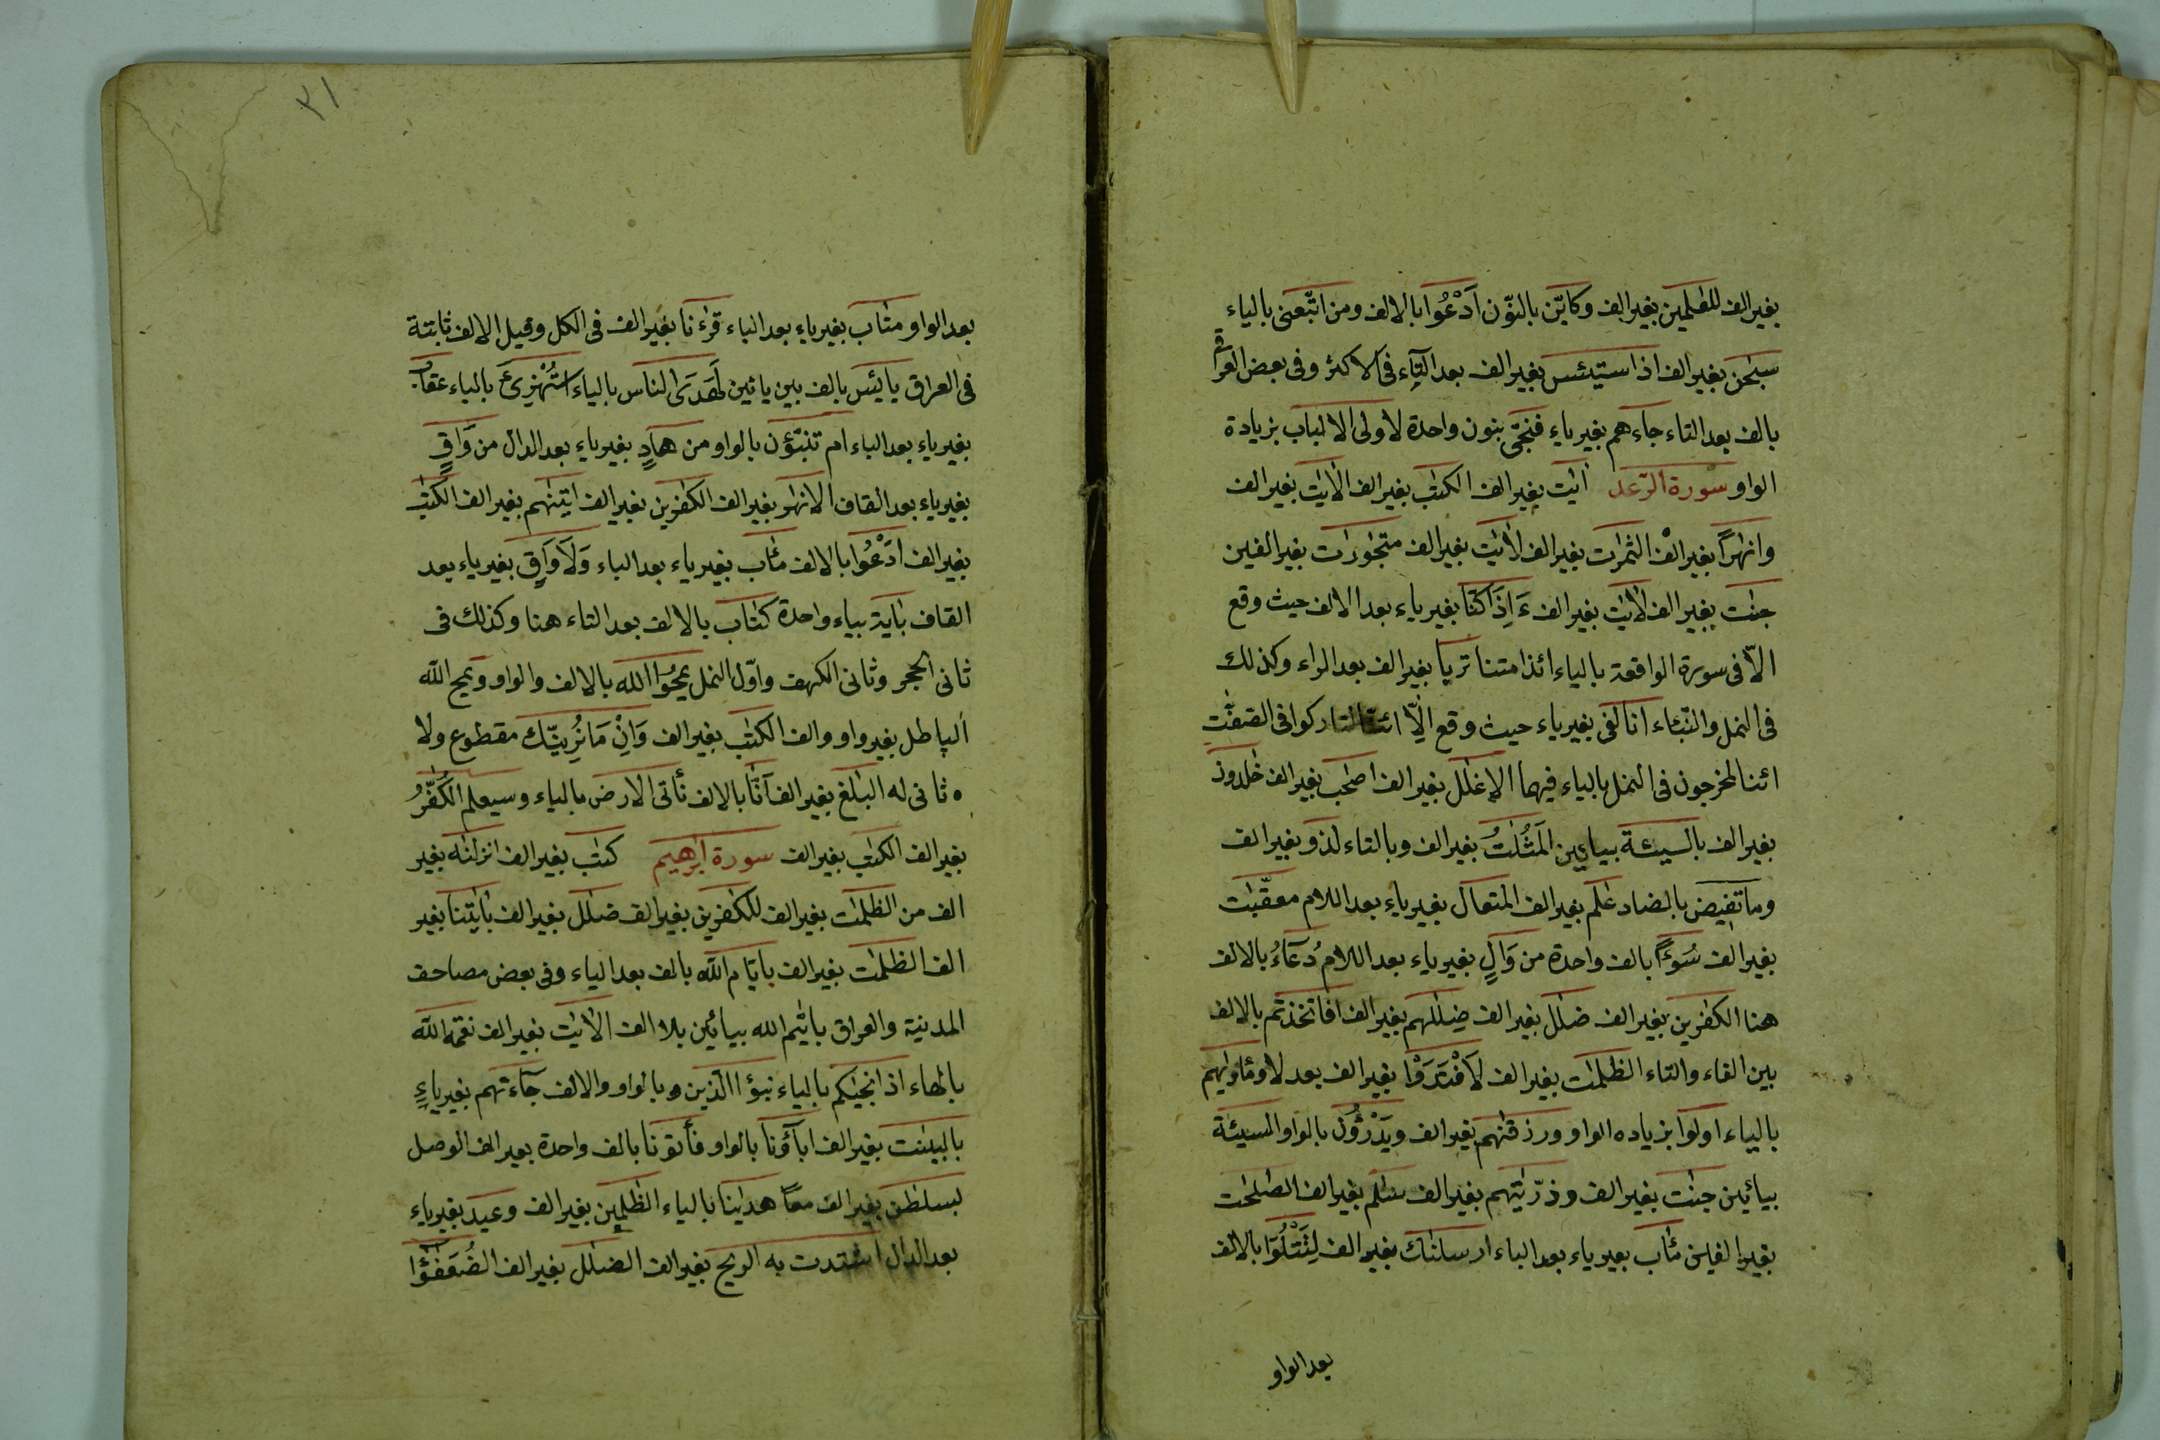 بغير الف للظلمين بغير الف وكايّن بالنّون اَدْعُوا بالالف ومن اتّبعنى بالياء
سبحٰن بغير الف اذا ستيئس بغير الف بعد التآء فى الاكثر وفى بعض العراق
بالف بعد التاء جاءهم بغير ياء فنجّى بنون واحدة لاولى الالباب بزيادة
الواو سورة الرّعد اٰيٰت بغير الف الكتٰب بغير الف الاٰيٰت بغير الف
وانهٰرًا بغير الف الثمرٰت بغير الف لاٰيٰت بغير الف متجٰورٰت بغير الفين
جنٰت بغير الف لاٰيٰت بغير الف ءَاِذَا كُنّا بغير ياء بعد الالف حيث وقع
الّا فى سورة الواقعة بالياء ائذا متنا تربا بغير الف بعد الراء وكذلك
فى النمل والنّباء انا لفى بغير ياء حيث وقع الّا ائنّا لتاركوا فى الصٰفّٰت
ائنا لمخرجون فى النمل بالياء فيهما الاغلٰل بغير الف اصحٰب بغير الف خٰلدون
بغير الف بالسيئة بيائين المَثُلٰتُ بغير الف وبالتاء لذو بغير الف
وما تغيض بالضاد عٰلم بغير الف المتعال بغير ياء بعد اللام معقّبٰت
بغير الف سُوءًا بالف واحدة من وَالٍ بغير ياء بعد اللام دُعَآءُ بالالف
هنا الكٰفرين بغير الف ضلٰل بغير الف ظِلٰلهم بغير الف افاتخذتم بالالف
بين الفاء والتاء الظلمٰت بغير الف لَافْتَدَوْا بغير الف بعد لا ومأوٰيهم
بالياء اولوا بزياده الواو ورزقنٰهم بغير الف ويَدْرَؤُن بالواو السيئة
بيائين جنٰت بغير الف وذرّيّٰتهم بغير الف سلٰم بغير الف الصٰلحٰت
بغير الفين مئاب بغير ياء بعد الباء ارسلنٰك بغير الف لِتَتْلُوَا بالالف
بعد الواو
٣١
بعد الواو متاب بغير ياء بعد الباء قرءٰنا بغير الف فى الكل وقيل الالف ثابتة
فى العراق يايئس بالف بين يائين لَهَدَى الناس بالياء اسْتُهْزِئَ بالياء عقاب
بغير ياء بعد الباء ام تنبّؤن بالواو من هادٍ بغير ياء بعد الدال من وَاقٍ
بغير ياء بعد القاف الانهٰر بغير الف الكٰفرين بغير الف اٰتينٰهم بغير الف الكتٰب
بغير الف ادْعُوا بالالف مئاب بغير ياء بعد الباء وَلَا وَاقٍ بغير ياء بعد
القاف بٰاية بياء واحدة كتاب بالالف بعد التاء هنا وكذلك فى
ثانى الحجر وثانى الكهف واوّل النمل يمحُوا الله بالالف والواو ويمح الله
الباطل بغير واو والف الكتٰب بغير الف وَاِنْ مَا نُرِيَنّك مقطوع ولا
ه ثانى له البلٰغ بغير الف اَنّا بالالف نأتى الارض بالياء وسيعلم الكُفّٰرُ
بغير الف الكتٰب بغير الف سورة ابرٰهيم كتٰب بغير الف انزلنٰه بغير
الف من الظلمٰت بغير الف للكٰفرين بغير الف ضلٰل بغير الف باٰيٰتنا بغير
الف الظلمٰت بغير الف بايّام اللّه بالف بعد الياء وفى بعض مصاحف
المدنية والعراق باييّٰم الله بيائين بلا الف الاٰيٰت بغير الف نعمة اللّه
بالهاء اذ انجيٰكم بالياء نبؤا الذين وبالواو والالف جآءتهم بغير ياءٍ
بالبينٰت بغير الف اباؤُنا بالواو فأتونا بالف واحدة بغير الف الوصل
بسلطٰن بغير الف معًا هدٰينا بالياء الظٰلمين بغير الف وعيد بغير ياء
بعد الدال اشتدت به الريح بغير الف الضلٰل بغير الف الضُعَفٰؤُا